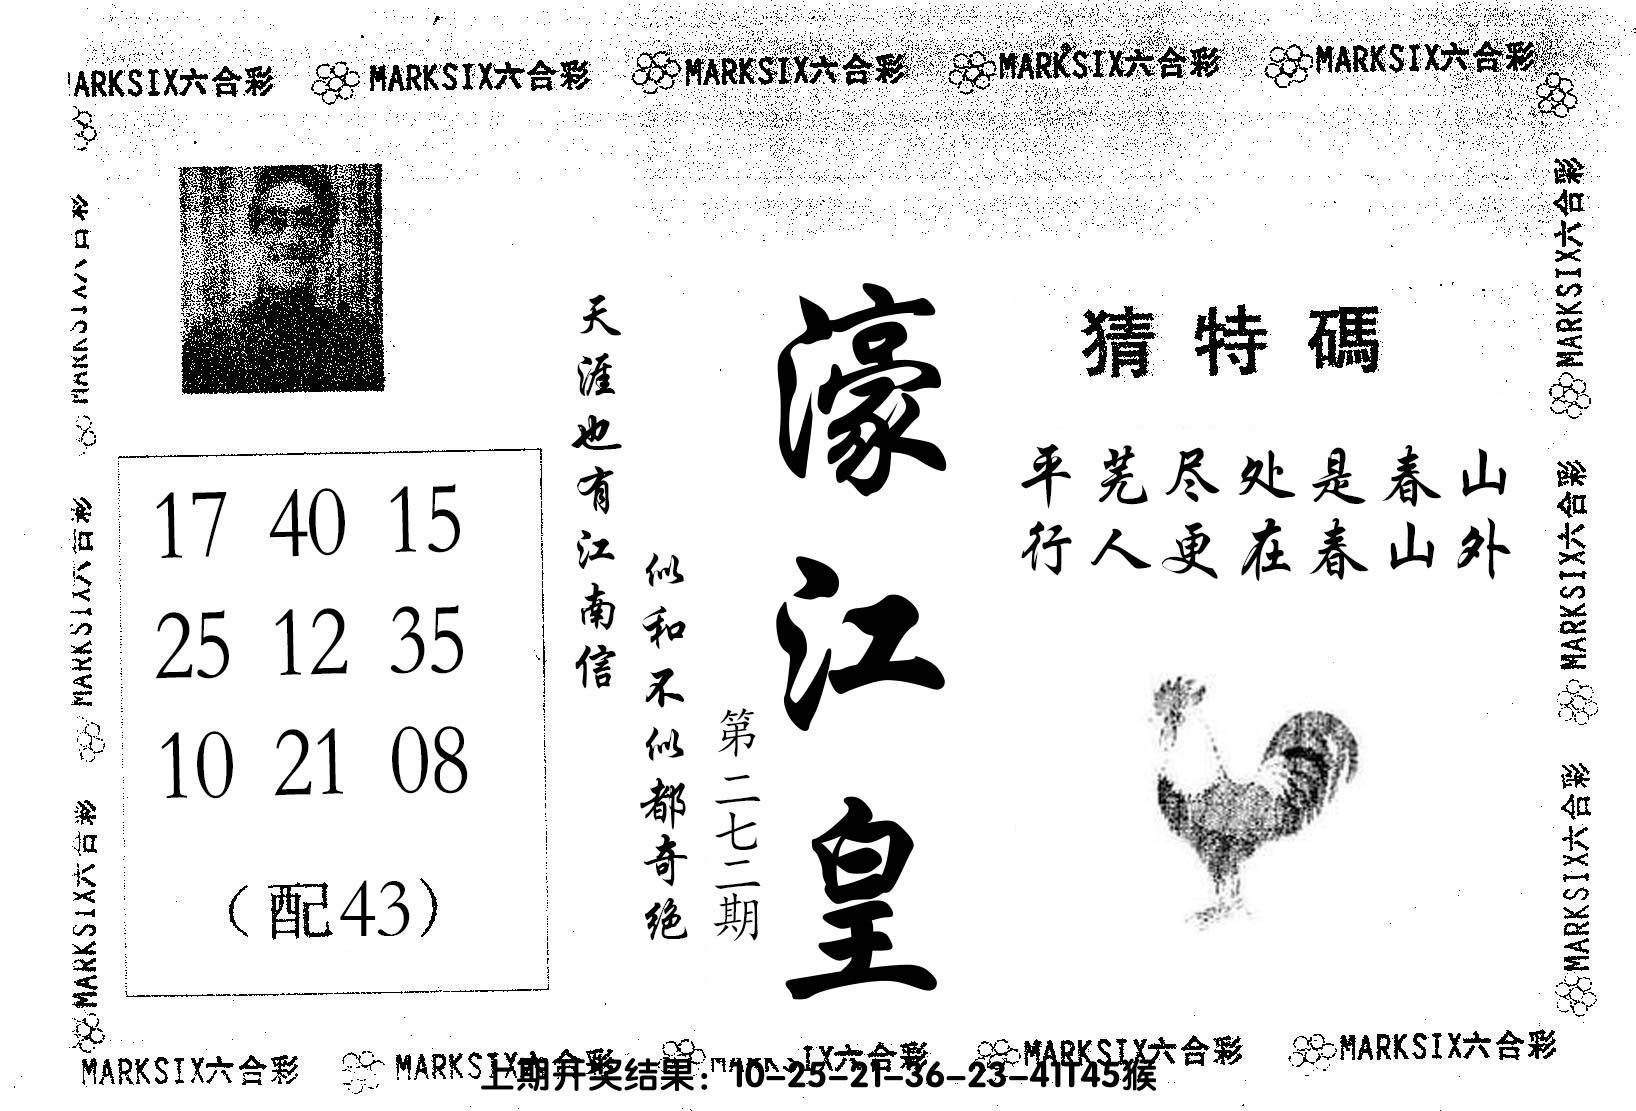 MARKSIX六合彩 MARKSIX六合彩 MARKSIX六合彩 MARKSIX六合彩 MARKSIX六合彩
MARKSIX六合彩
MARKSIX六合彩
MARKSIX六合彩
17 40 15
25 12 35
10 21 08
(配43)
天涯也有江南信
似和不似都奇绝
第二七二期
濠江皇
猜特碼
平芜尽处是春山
行人更在春山外
MARKSIX六合彩
MARKSIX六合彩
MARKSIX六合彩
MARKSIX六合彩 MARKSIX六合彩 MARKSIX六合彩 MARKSIX六合彩 MARKSIX六合彩
上期开奖结果：10-25-21-36-23-41T45猴